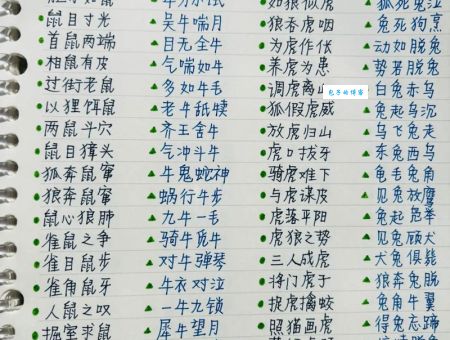 如狼似虎 狐死兔泣
鼠目寸光 吴牛喘月 狼吞虎咽 兔死狗烹
首鼠两端 目无全牛 为虎作伥 动如脱兔
相鼠有皮 气喘如牛 养虎为患 势若脱兔
过街老鼠 多如牛毛 调虎离山 白兔赤乌
以狸饵鼠 老牛舐犊 狐假虎威 兔起乌沉
两鼠斗穴 齐王舍牛 放虎归山 乌飞兔走
鼠目獐头 气冲斗牛 虎口拔牙 东兔西乌
狐奔鼠窜 牛鬼蛇神 骑虎难下 龟毛兔角
狼奔鼠窜 蜗行牛步 与虎谋皮 见兔放鹰
鼠心狼肺 九牛一毛 虎落平阳 兔起凫举
雀鼠之争 骑牛觅牛 虎狼之势 见兔顾犬
雀目鼠步 对牛弹琴 三人成虎 犬兔俱毙
雀角鼠牙 牛衣对泣 将门虎子 狼奔兔脱
人鼠之叹 一牛九锁 捉虎擒蛟 兔角牛翼
掘室求鼠 犀牛望月 照猫画虎 得兔忘蹄
包子的博客